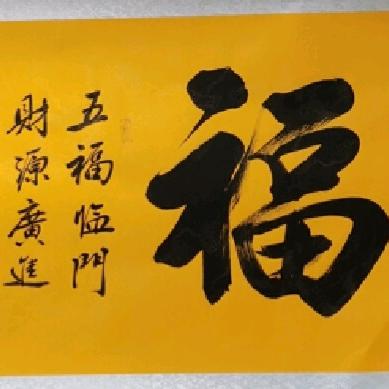 福
五福临門
財源廣進